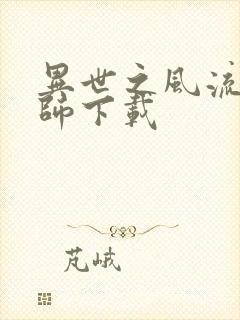 異世之風流
師下載
芃峨